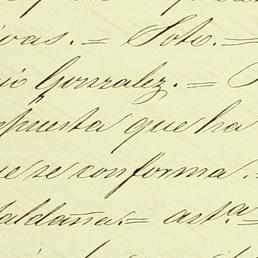 ivas. = Soto. =
Gonzalez. =
puesta que ha
ue se conforma.
Saldaña. = asta